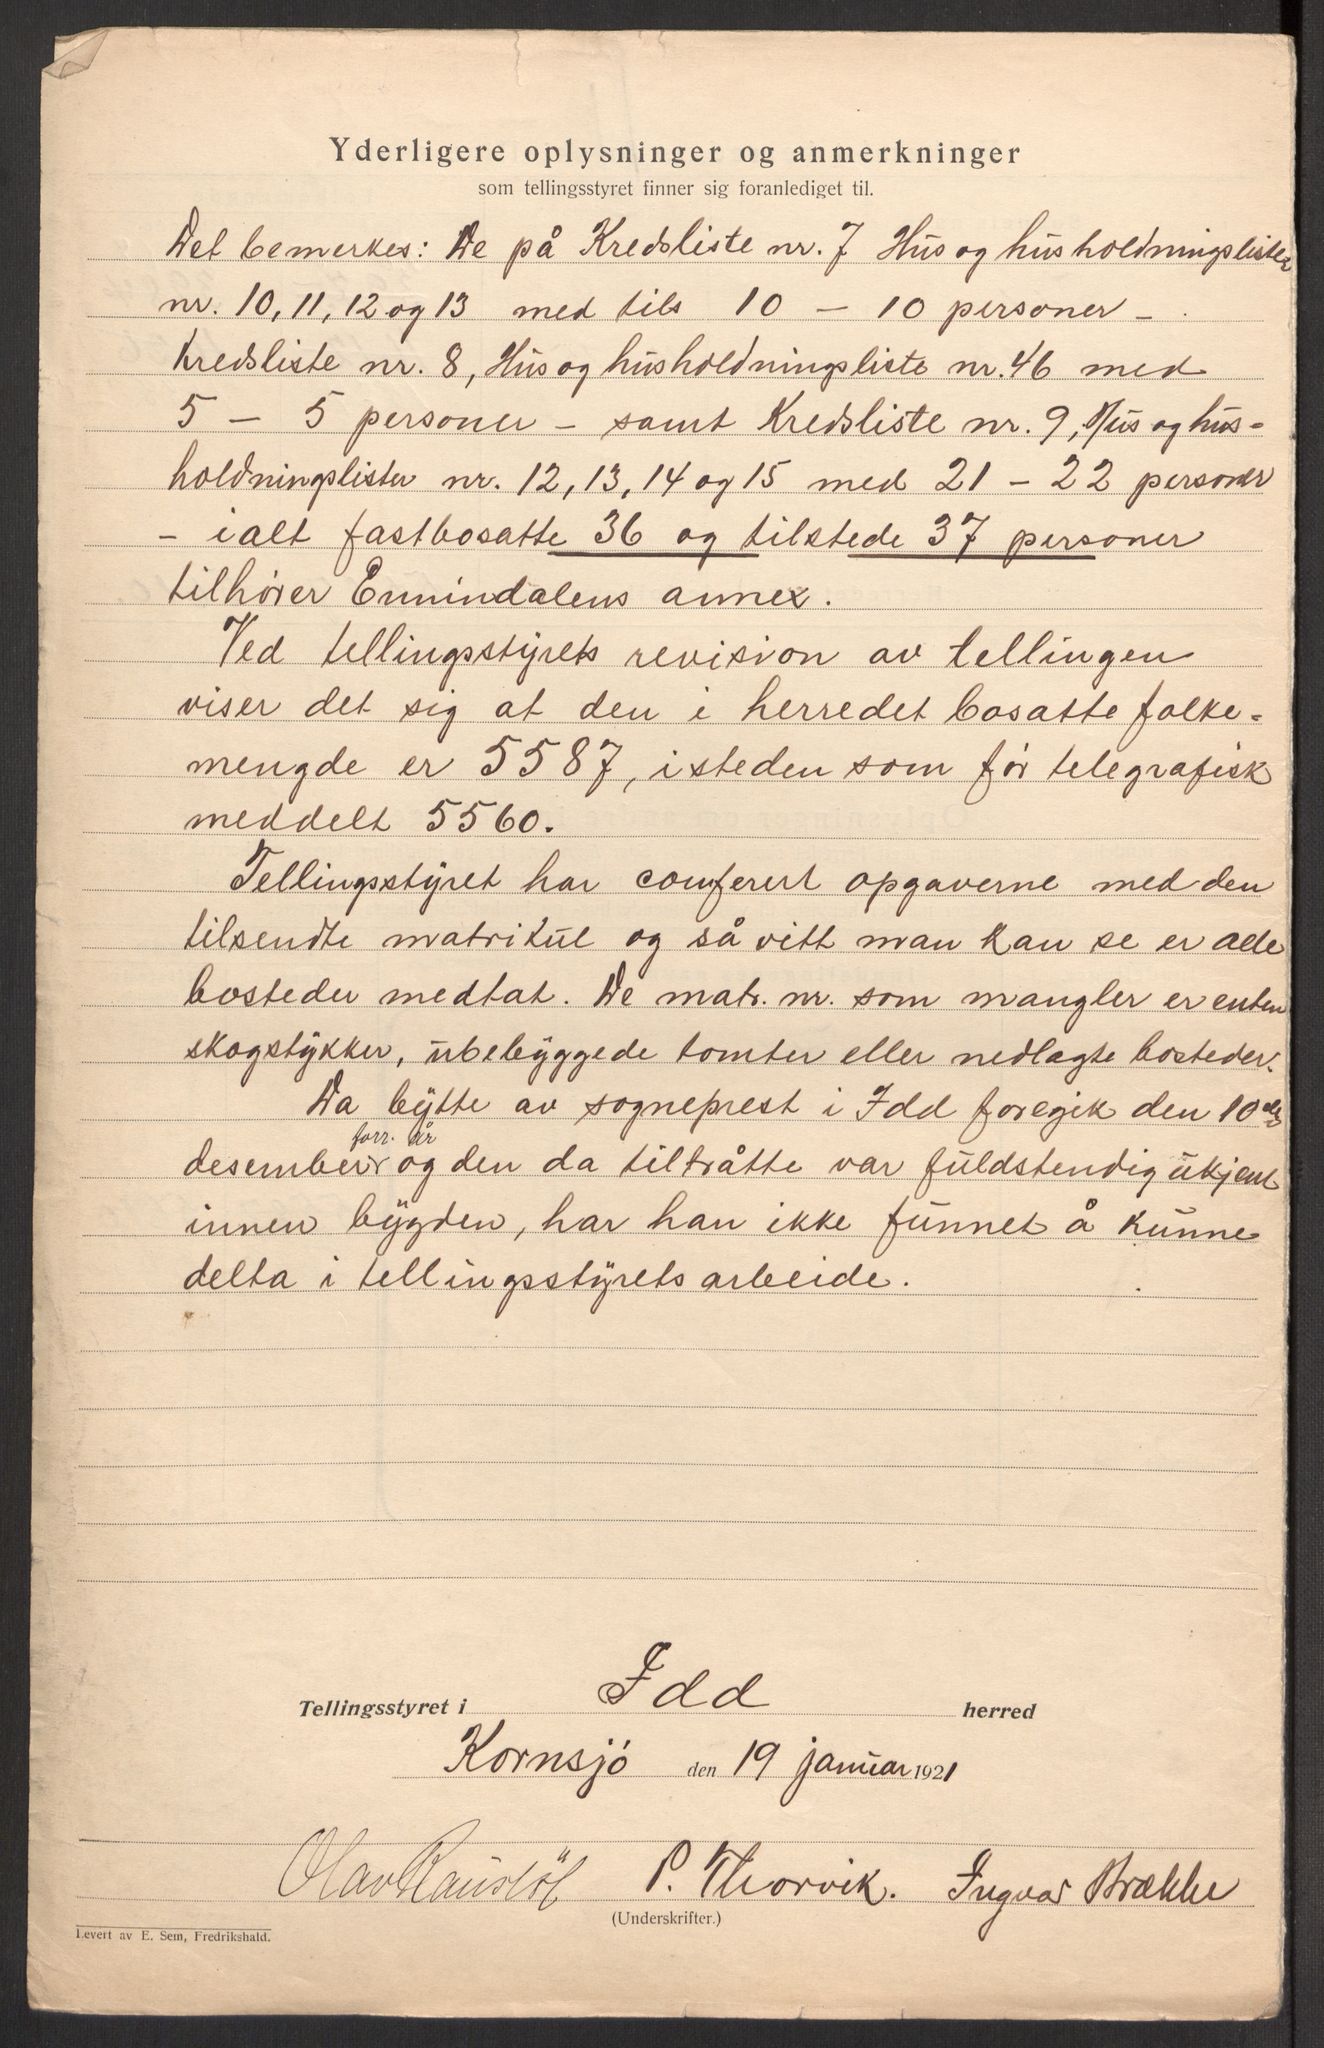 Yderligere oplysninger og anmerkninger
som tellingsstyret finner sig foranlediget til.
Det bemerkes: De på Kredsliste nr. 7 Hus og husholdningslister
nr. 10, 11, 12 og 13 med tils 10 – 10 personer –
Kredsliste nr. 8, Hus og husholdningsliste nr. 46 med
5 – 5 personer – samt Kredsliste nr. 9, Hus og hus-
holdningslister nr. 12, 13, 14 og 15 med 21 – 22 personer
– ialt fastbosatte 36 og tilstede 37 personer
tilhører Ennindalens annex.
Ved tellingsstyrets revision av tellingen
viser det sig at den i herredet bosatte folke-
mengde er 5587, isteden som før telegrafisk
meddelt 5560.
Tellingsstyret har comferert opgaverne med den
tilsendte matrikul og så vitt man kan se er alle
bosteder medtat. De matr. nr. som mangler er enten
skogstykker, ubebyggede tomter eller nedlagte bosteder.
Da bytte av sogneprest i Idd foregik den 10de
forr. år
desember og den da tiltråtte var fuldstendig ukjent
innen bygden, har han ikke funnet å kunne
delta i tellingsstyrets arbeide.
Tellingsstyret i Idd herred
Kornsjø den 19 januar 1921
Olav P. Thorvik. Ingvar Brække
(Underskrifter.)
Levert av E. Sem, Fredrikshald.